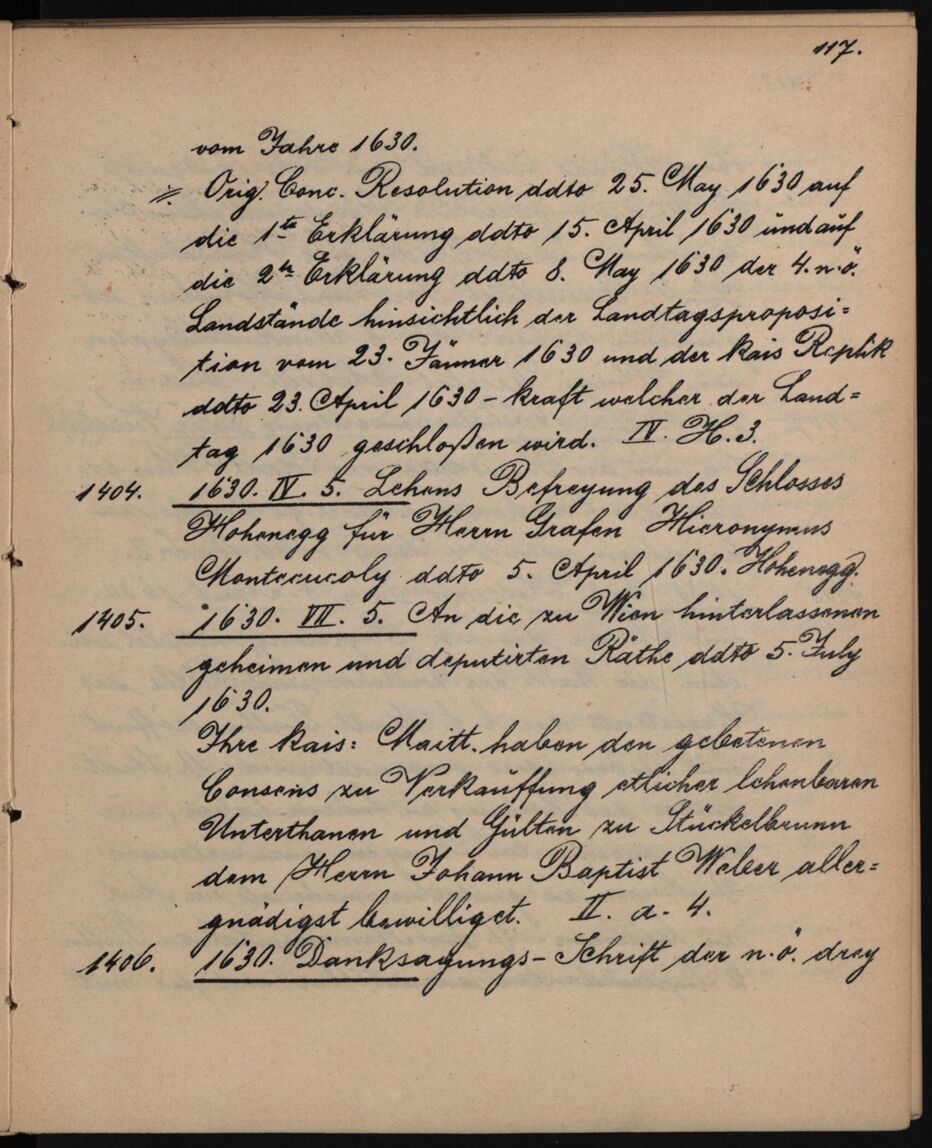 117.
vom Jahre 1630.
Orig. Conc. Resolution ddto 25. May 1630 auf
die 1te Erklärung ddto 15. April 1630 und auf
die 2te Erklärung ddto 8. May 1630 der 4. n. ö.
Landstände hinsichtlich der Landtagsproposi=
tion vom 23. Jänner 1630 und der kais Replik
ddto 23. April 1630 – kraft welcher der Land=
tag 1630 geschloßen wird. IV. H. 3.
1404. 1630. IV. 5. Lehens Befreyung des Schlosses
Hohenegg für Herrn Grafen Hieronymus
Montecucoly ddto 5. April 1630. Hohenegg.
1405. 1630. VII. 5. An die zu Wien hinterlassenen
geheimen und deputirten Räthe ddto 5. July
1630.
Ihre kais: Maitt. haben den gebetenen
Consens zu Verkauffung etlicher lehenbaren
Unterthanen und Gülten zu Stückelbrunn
dem Herrn Johann Baptist Weber aller=
gnädigst bewilliget. II. a. 4.
1406. 1630. Danksagungs – Schrift der n. ö. drey